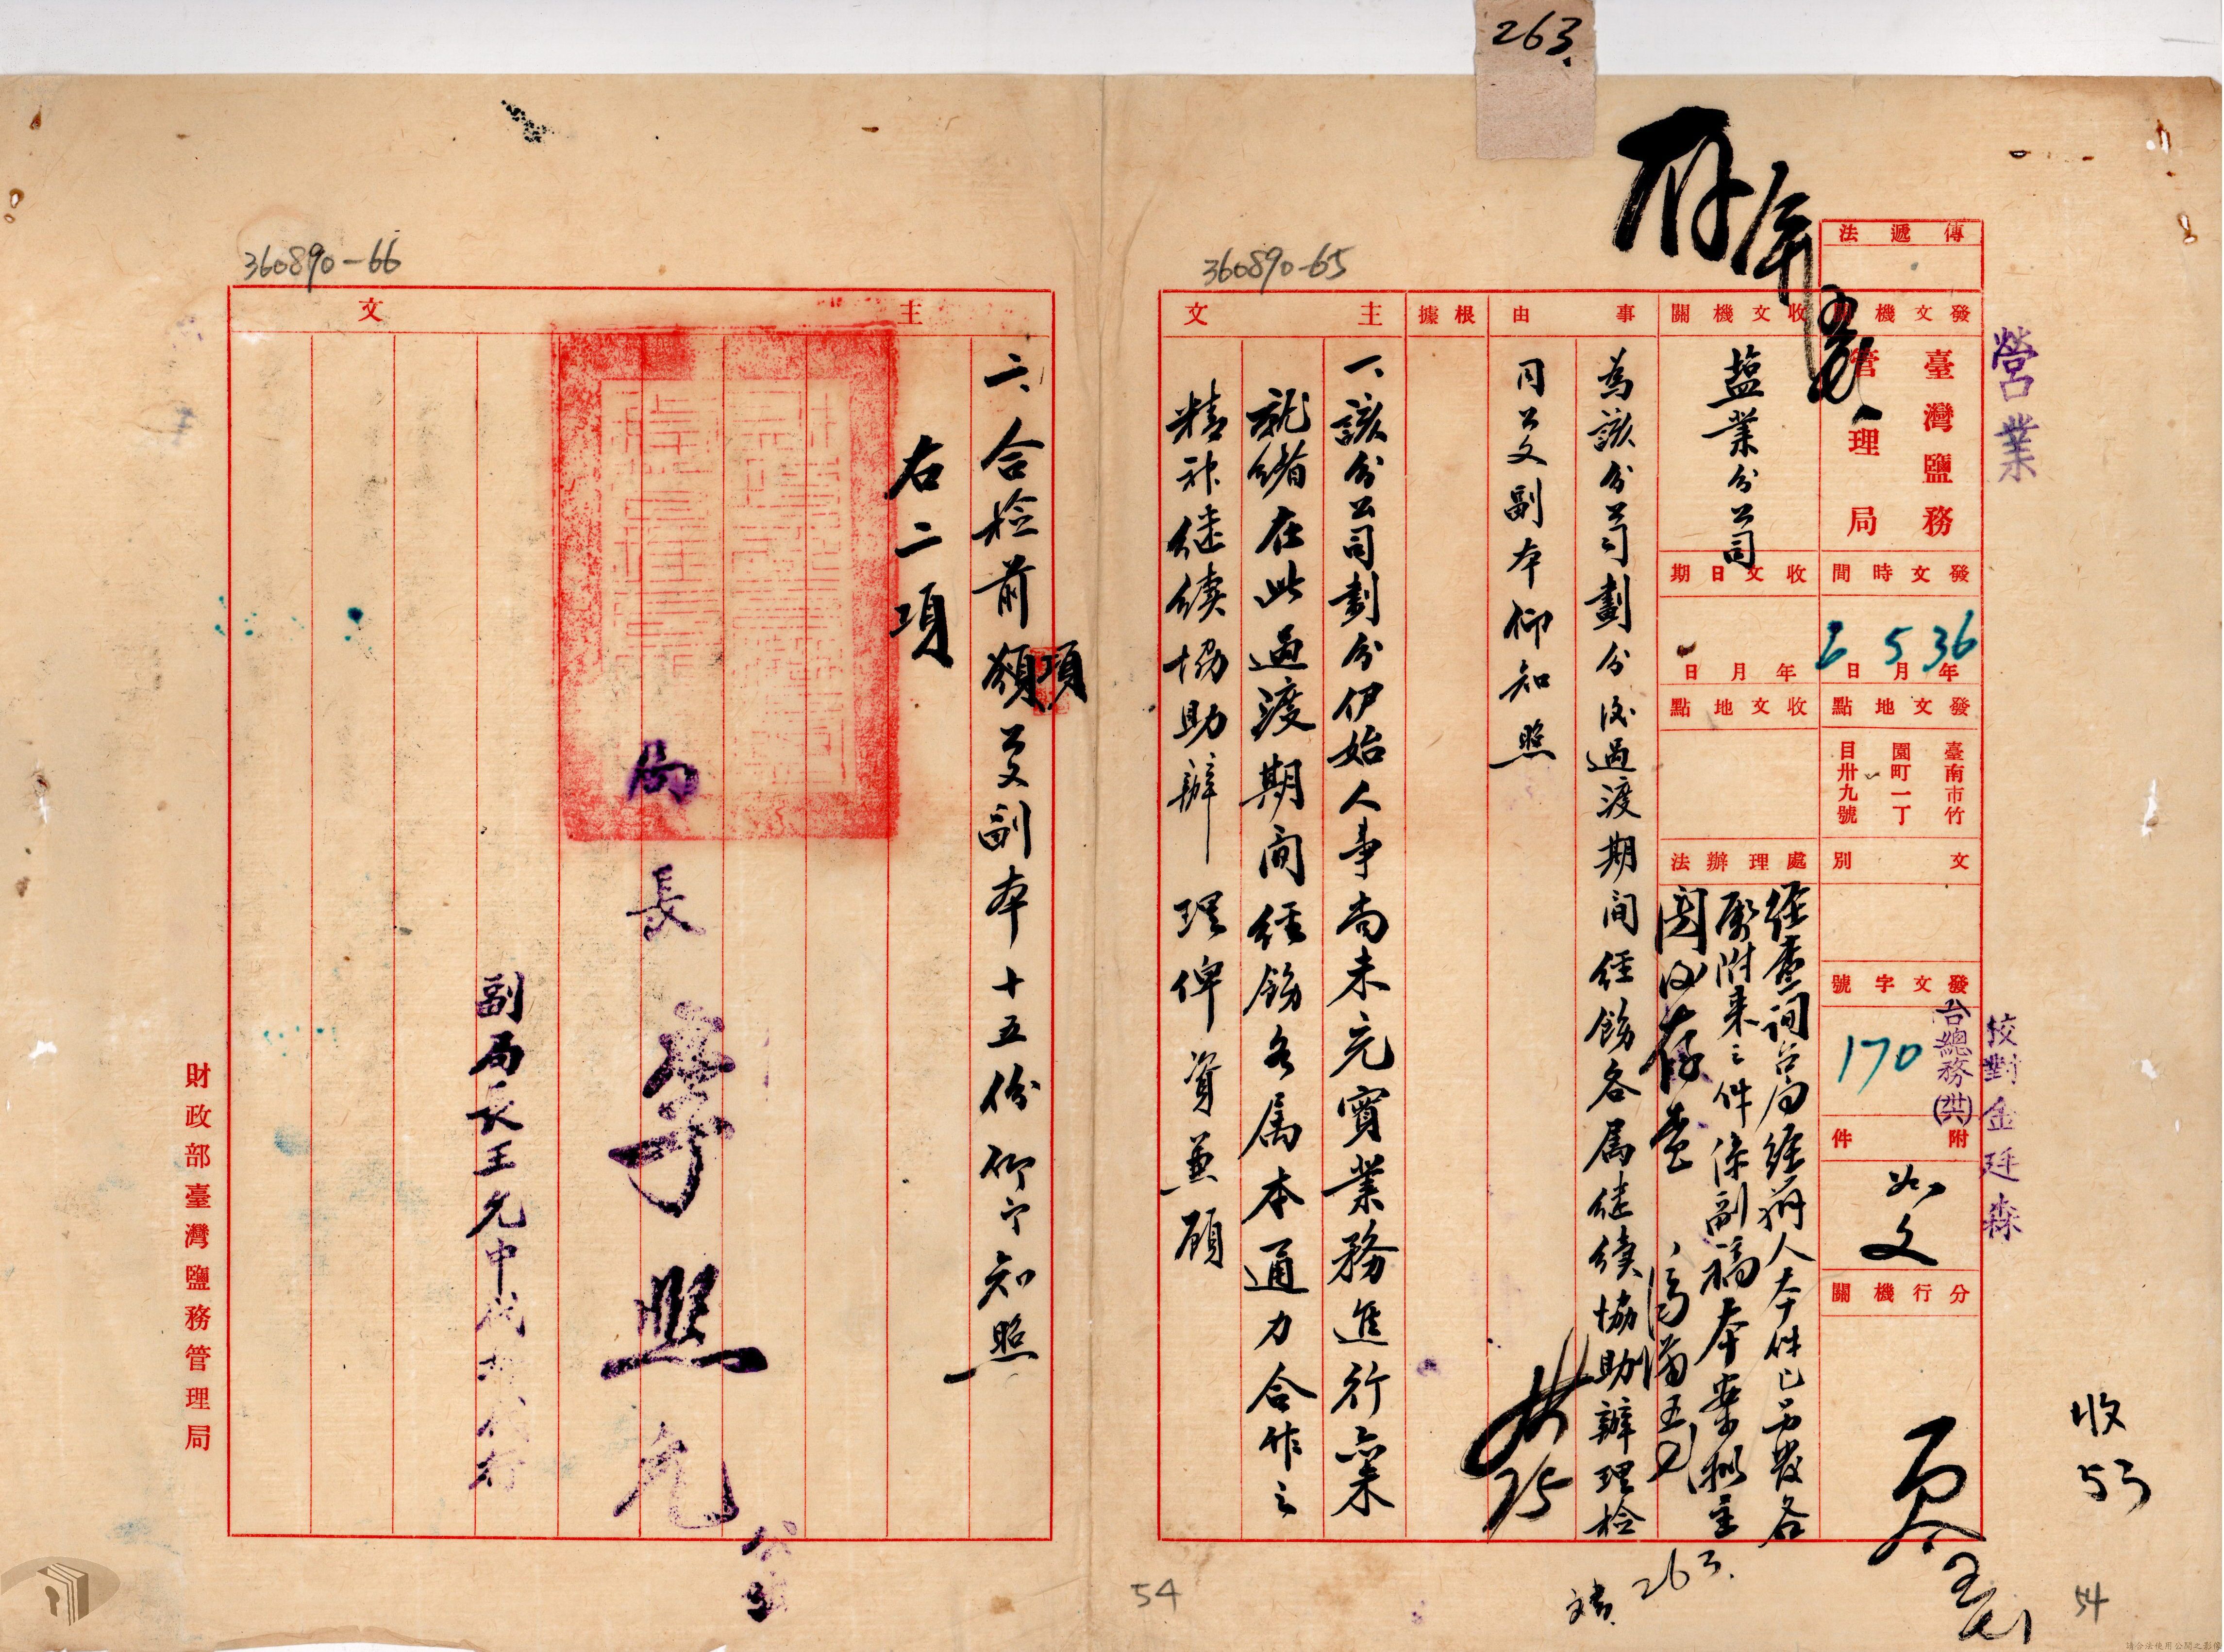 263.
存
傳遞法
營業
發文機關
臺灣鹽務
管理局
發文時間
36年5月2日
發文地點
臺南市竹
園町一丁
目卅九號
文別
發文字號
台總務(洪)
170
附件
如文
分行機關
校對金廷森
收文機關
盐業分公司
收文日期
年月日
收文地點
處理辦法
經查詢台局經辦人本件已另發各
属附来之件係副稿本案擬主
閱后存查
事由
為該分公司劃分後過渡期间经飭各属继續協助辦理檢
同公文副本仰知照
根據
主文
一、該分公司劃分伊始人事尚未充實業務進行亦未
就緒在此過渡期间经飭各属本通力合作之
精神继续協助辦理俾資兼顧
收
53
263.
54
54
360890-65
360890-66
主文
二、合檢前項公文副本十五份仰予知照
右二項
局長李照九
副局長王允中
財政部臺灣鹽務管理局